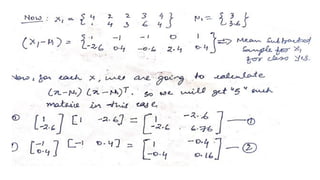 Now: x₁ = { 4 2 2 3 4
1 4 3 6 4 } M₁ = { 3
3.6 }
(x₁-M₁) = { 1 -1 -1 0 1
-2.6 0.4 -0.6 2.4 0.4 } ⇒ Mean Subtracted
Sample for x₁
for class yes.
Now, for each x, we are going to calculate
(x-M₁) (x-M₁)ᵀ. So we will get "5" such
matrix in this case.
① [ 1
-2.6 ] [1 -2.6] = [ 1 -2.6
-2.6 6.76 ] —①
[ -1
0.4 ] [-1 0.4] = [ 1 -0.4
-0.4 0.16 ] —②